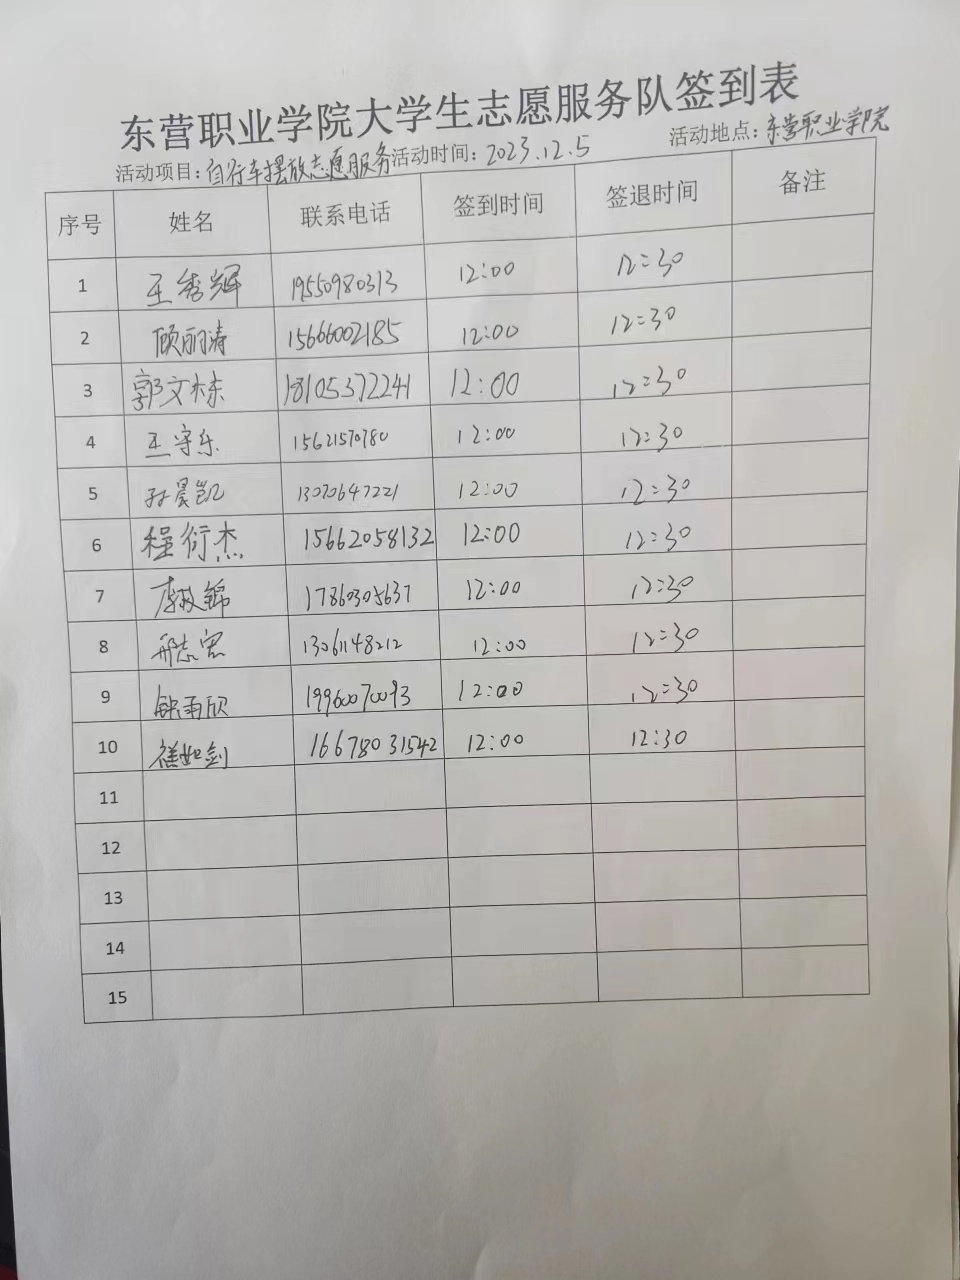 东营职业学院大学生志愿服务队签到表
活动项目：自行车摆放志愿服务 活动时间：2023.12.5 活动地点：东营职业学院
序号 姓名 联系电话 签到时间 签退时间 备注
1 王秀辉 19550980313 12:00 12:30
2 顾丽涛 15666002185 12:00 12:30
3 郭文栋 18105372241 12:00 12:30
4 王守乐 15621570780 12:00 12:30
5 孙晨凯 13070647221 12:00 12:30
6 程衍杰 15662058132 12:00 12:30
7 李毅锦 17860305637 12:00 12:30
8 邢志宏 13061148212 12:00 12:30
9 雨欣 19960070093 12:00 12:30
10 如剑 16678031542 12:00 12:30
11
12
13
14
15